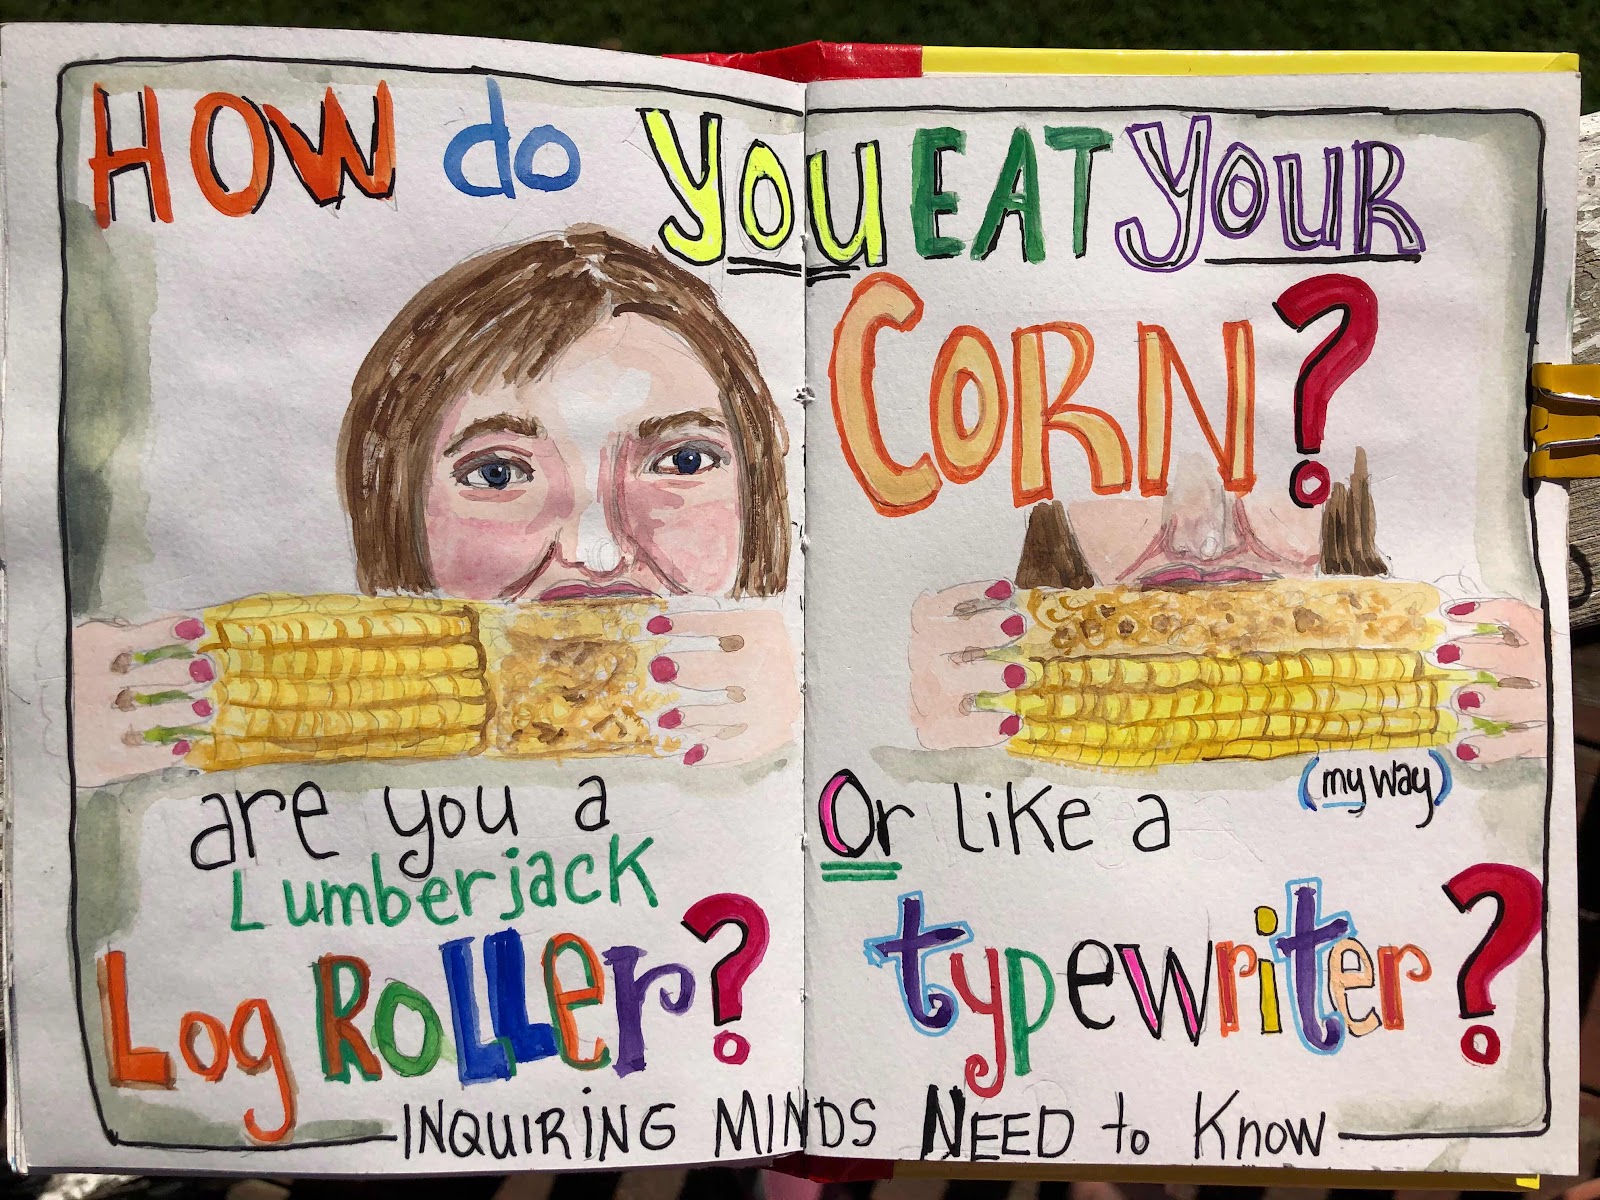 HOW do YOU EAT YOUR
CORN?
(my way)
are you a
Lumberjack
Log ROLLer?
Or like a
typewriter?
INQUIRING MINDS NEED to Know